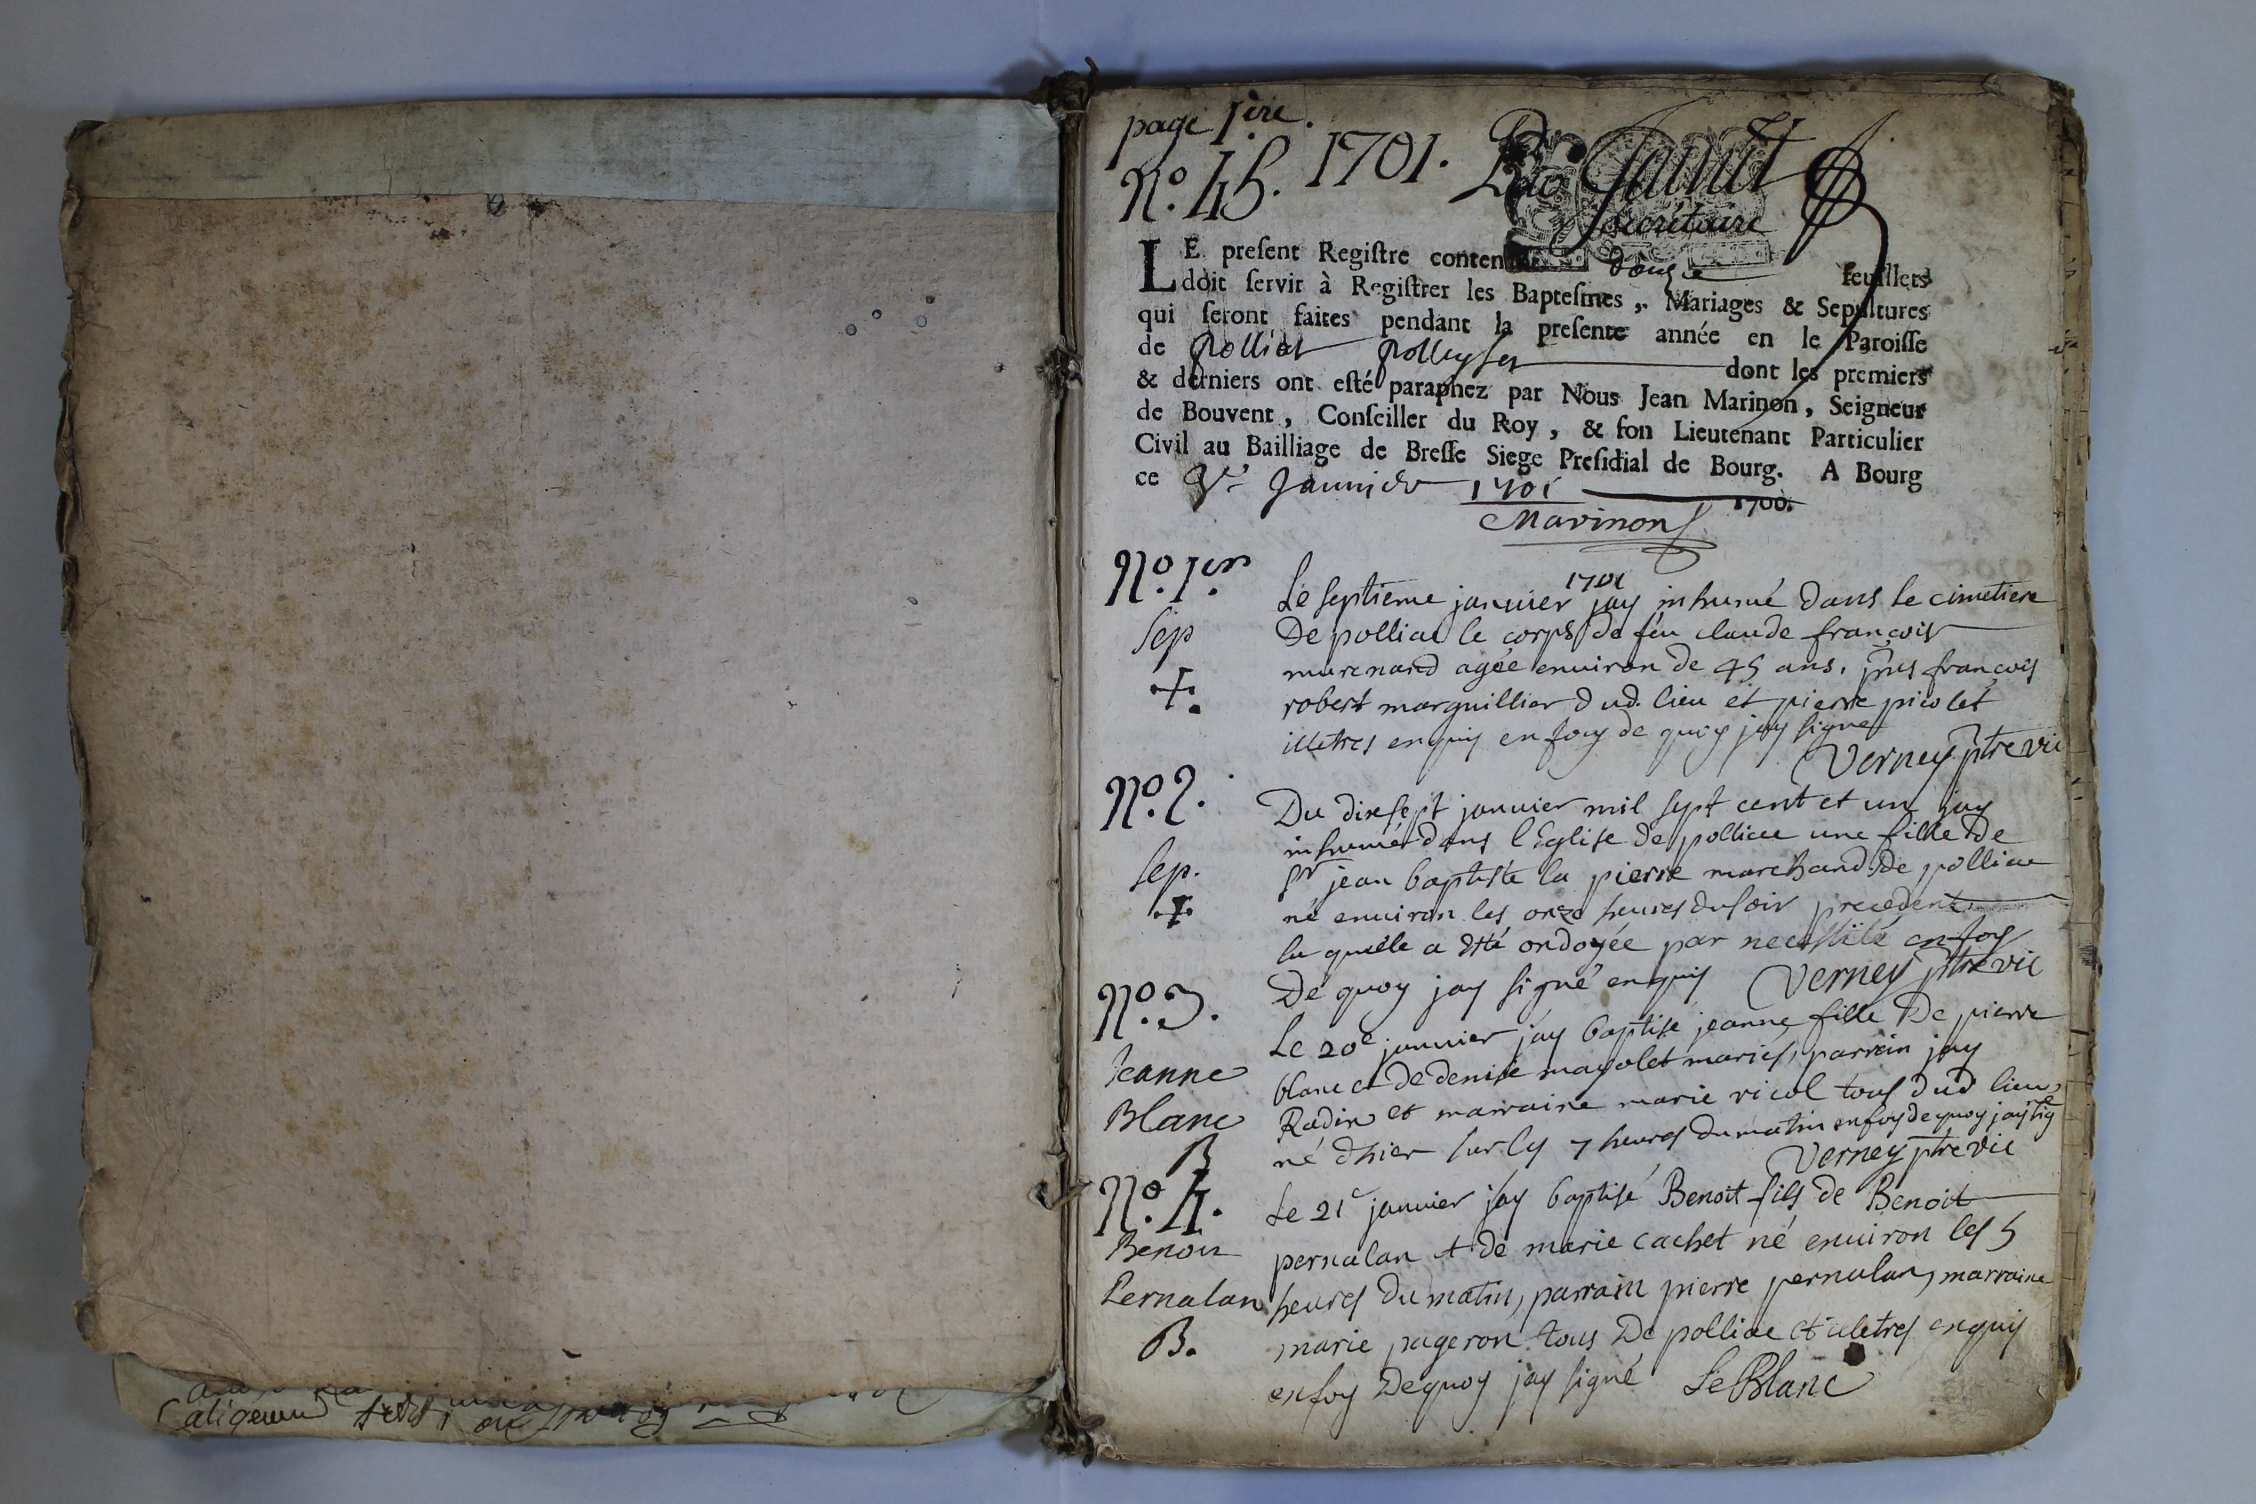 page 1ère.
No. 45. 1701.
Secrétaire
LE preſent Regiſtre contenant douze feuillets
doit ſervir à Regiſtrer les Bapteſmes, Mariages & Sepultures
qui ſeront faites pendant la preſente année en le Paroiſſe
de Polliat dont les premiers
& derniers ont eſté paraphez par Nous Jean Marinon, Seigneur
de Bouvent, Conſeiller du Roy, & ſon Lieutenant Particulier
Civil au Bailliage de Breſſe Siege Preſidial de Bourg. A Bourg
ce Januier 1701 1700.
Marinon
No. 1er
Sep
Le septieme januier 1701 jay inhumé dans le cimetiere
De polliac le corps de feu claude françois
murenard agée enuiron de 45 ans, pñs françois
robert marguillier dud. lieu et pierre picolet
illetres enquis en foy de quoy jay signé
Verney ptre vic
No. 2.
Sep.
Du dixsept januier mil sept cent et un jay
inhumé dans l'Eglise de polliac une fille de
Sr jean baptiste la pierre marchand de polliac
né enuiron les onze heures du soir precedent
la quelle a étté ondoyée par necessité en foy
De quoy jay signé enquis Verney ptre vic
No. 3.
Jeanne
Blanc
B
Le 20e januier jay baptisé jeanne fille De pierre
blanc et de denise mayolet mariés, parrein jay
Radix et marraine marie ricol tous dud lieu,
né d'hier sur les 7 heures du matin en foy de quoy jay sig
Verney ptre vic
No. 4.
Benoit
Pernalan
B.
Le 21e januier jay baptisé Benoit fils de Benoit
pernalan et de marie cachet né enuiron les 5
heures du matin, parrain pierre pernalan, marraine
marie pageron tous De polliac et iletres enquis
en foy De quoy jay signé Le Blanc